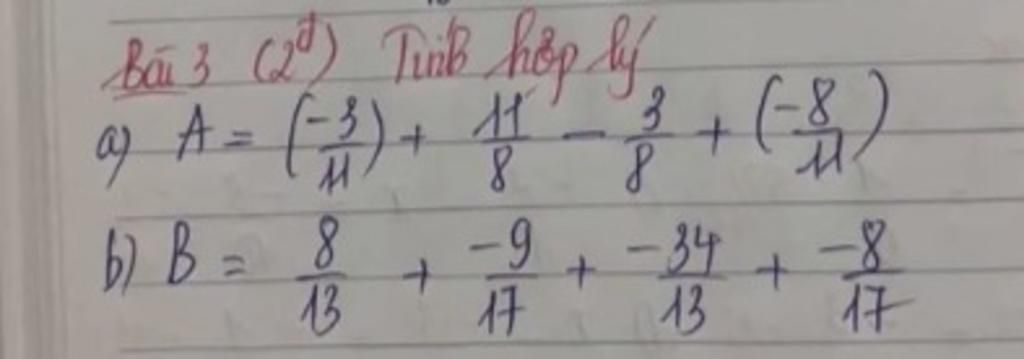 Bài 3 (2đ) Tính hợp lý
a) A = (-3/11) + 11/8 - 3/8 + (-8/11)
b) B = 8/13 + -9/17 + -34/13 + -8/17